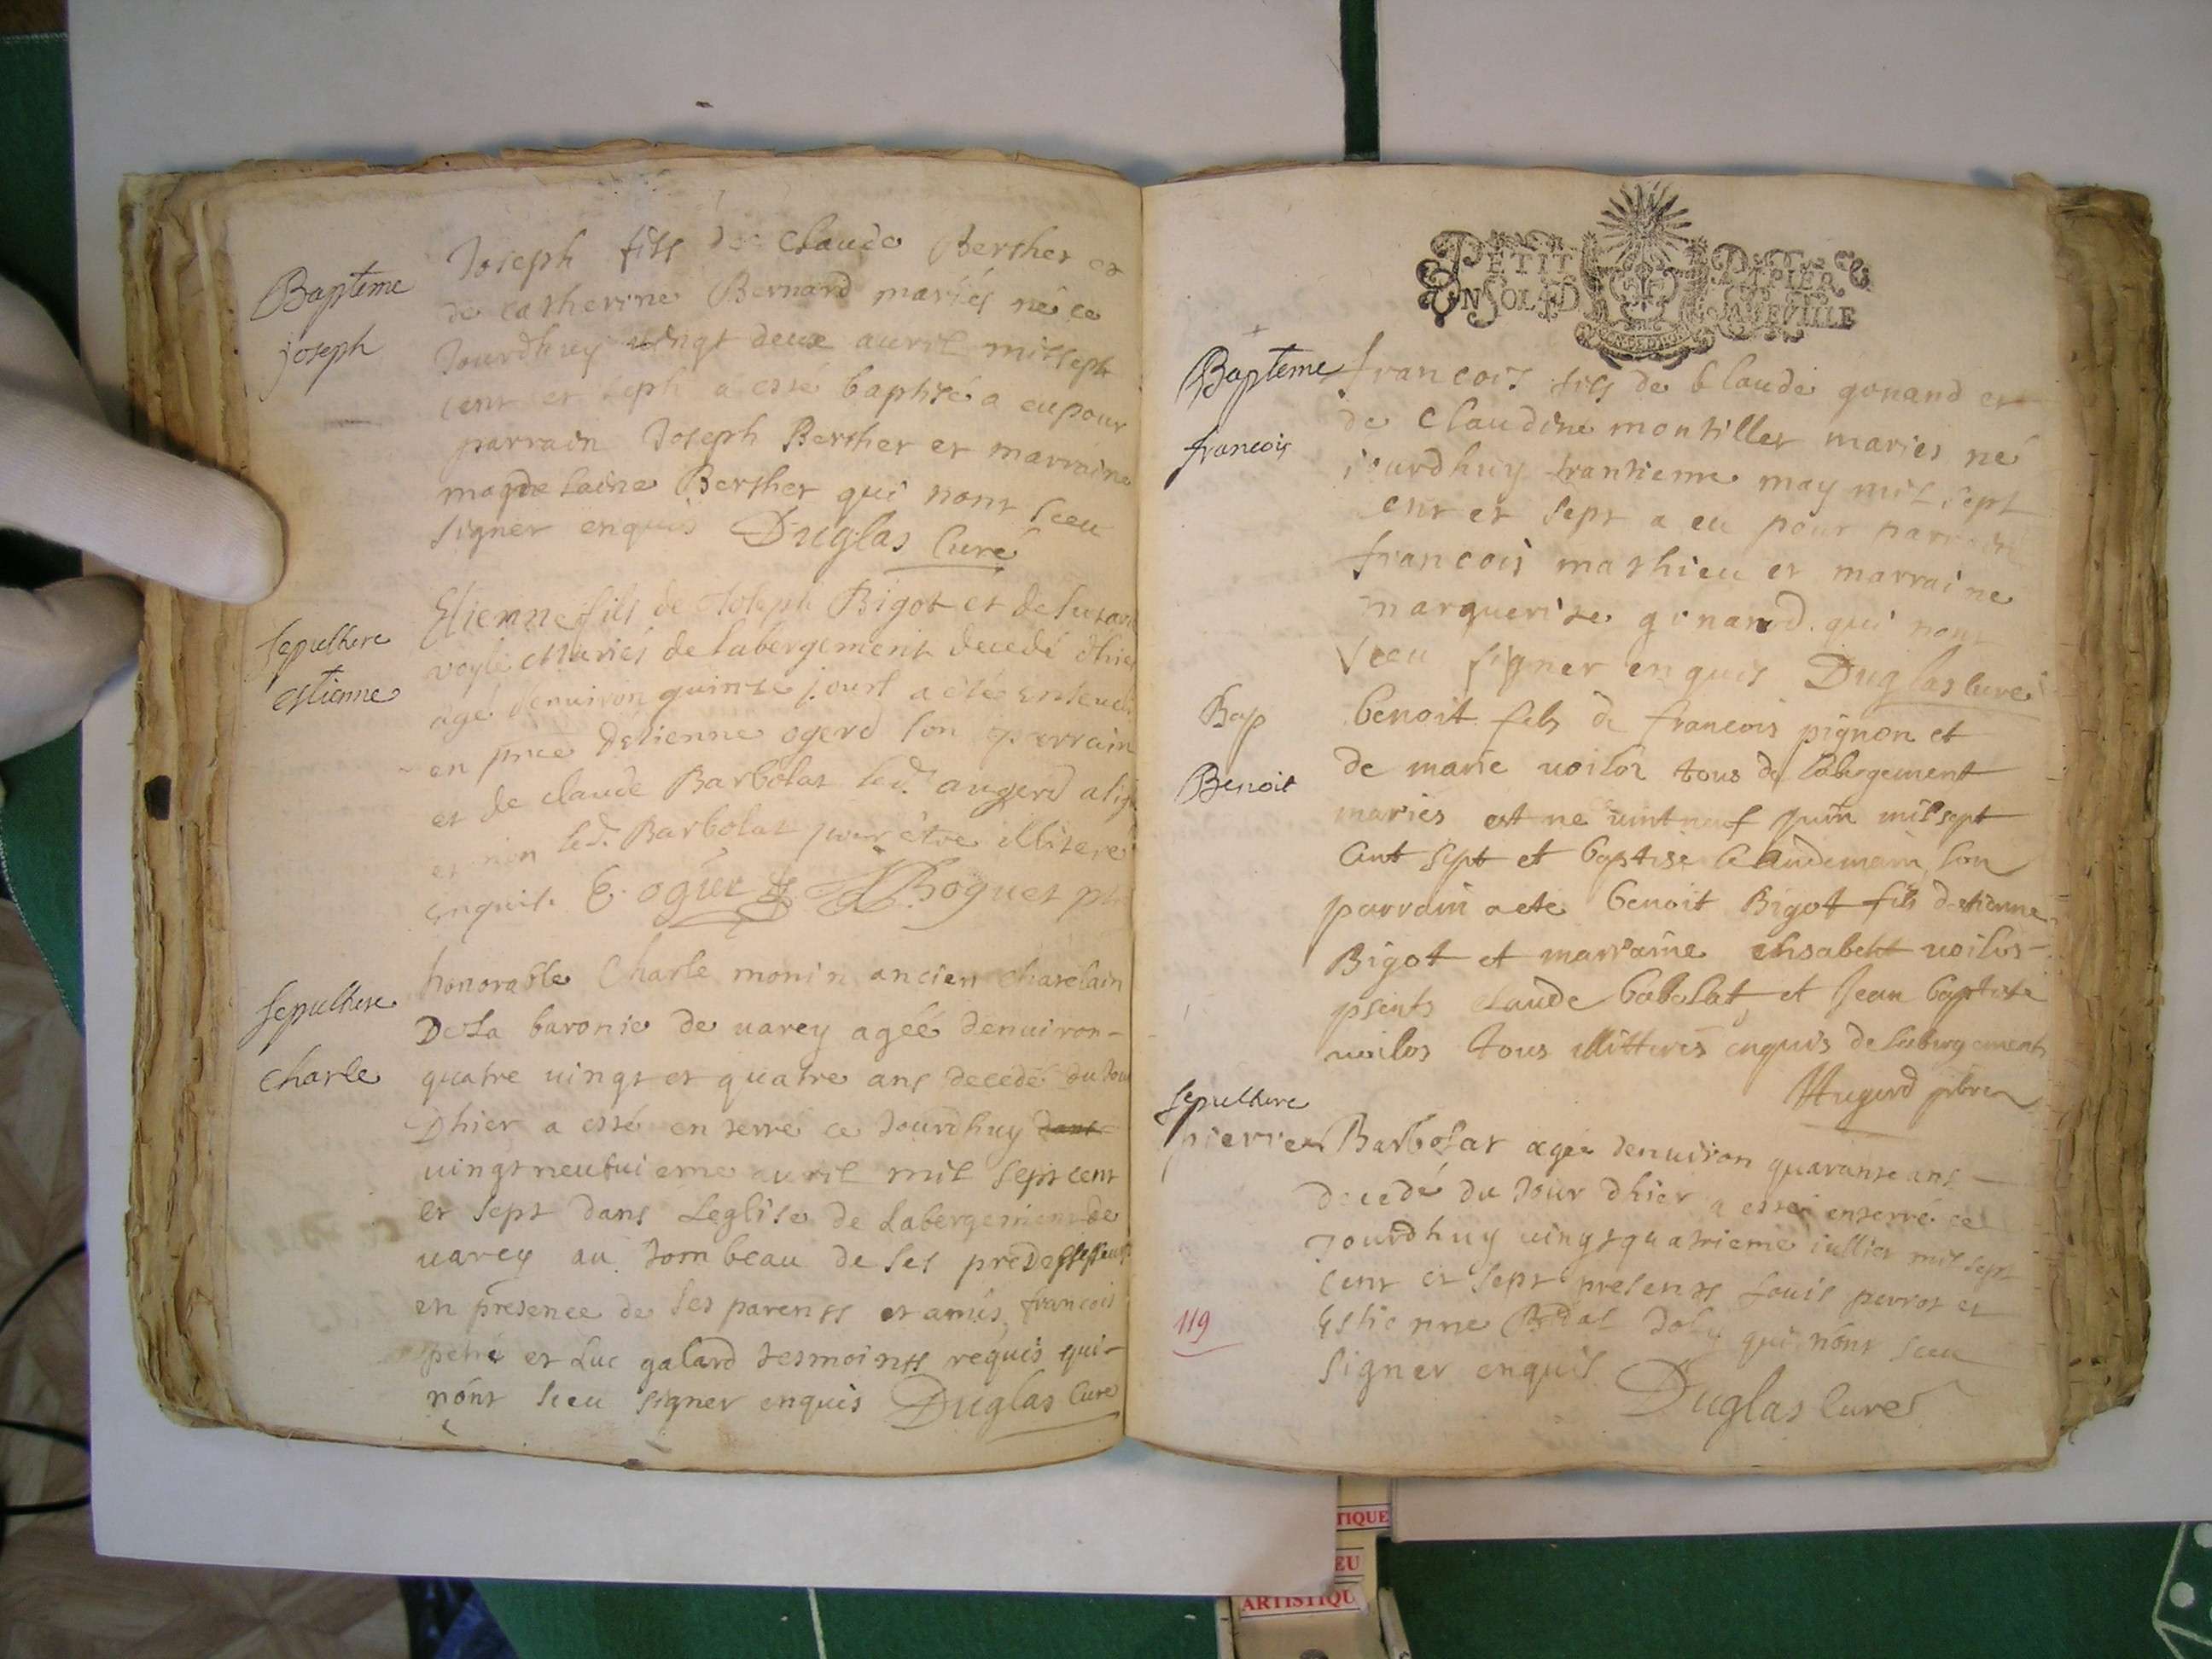 Bapteme
joseph
Joseph fils de Claude Berther et
de catherine Bernard mariés né ce
Jourdhuy vingt deux avril mil sept
cent et seph a essé baptisé a eu pour
parrain Joseph Berther et marraine
magdelaine Berther qui nont sceu
signer enquis Duglas Curé
sepulture
estienne
Etienne fils de Joseph Bigot et de
Mariés de labergement decedé dhier
agé denuiron quinze jours a été
en pnce d'etienne ogerd son parrain
et de claude Barbolat led. augerd
et non led. Barbolat pour être illiteré
enquis. E. oger Boguet
sepulture
charle
honorable Charle monin ancien chatelain
De La baronie de varey ageé denuiron
quatre vingt et quatre ans decedé du Jour
Dhier a essé en terré ce Jourdhuy
vingt neufuieme avril mil sept cent
et sept dans Leglise de Labergement de
varey au tombeau de ses
en presence de ses parents et amis francois
et Luc galard tesmoints requis qui
nónt sceu signer enquis Duglas Curé
PETIT PAPIER
UN SOL 4 D LA FEUILLE
Bapteme
francois
francois fils de Claude gonand et
de Claudine montillet maries né
jourdhuy trantieme may mil sept
ent et sept a eu pour parrain
francois mathieu et marraine
marguerite gonand qui nont
sceu signer enquis Duglas curé
Bap
Benoit
benoit fils de francois pignon et
de marie tous de labergement
maries est ne vint neuf juin mil sept
Cent sept et baptise le landemain son
parrain a ete benoit Bigot fils detienne
Bigot et marraine elisabeht voilos
psents claude babolat et Jean baptiste
voilos tous illitteres enquis de labergement
Augerd pbre
sepulture
pierre Barbolat agée denuiron quarante ans
decedé du Jour dhier a essé enterré ce
Jourdhuy vingt quatrieme iullier mil sept
cent et sept presents Louis perrot et
Estienne qui nónt sceu
signer enquis
Duglas Curé
119
TIQUE
EU
ARTISTIQU